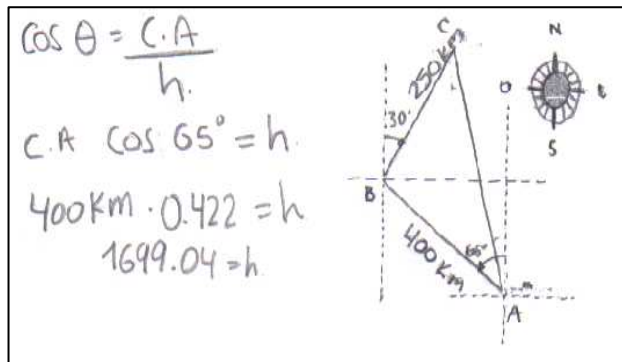 cos θ = C.A
h.
C.A cos 65° = h.
400 Km · 0.422 = h
1699.04 = h
C
250 Km
30°
B
400 Km
65°
A
N
O
E
S